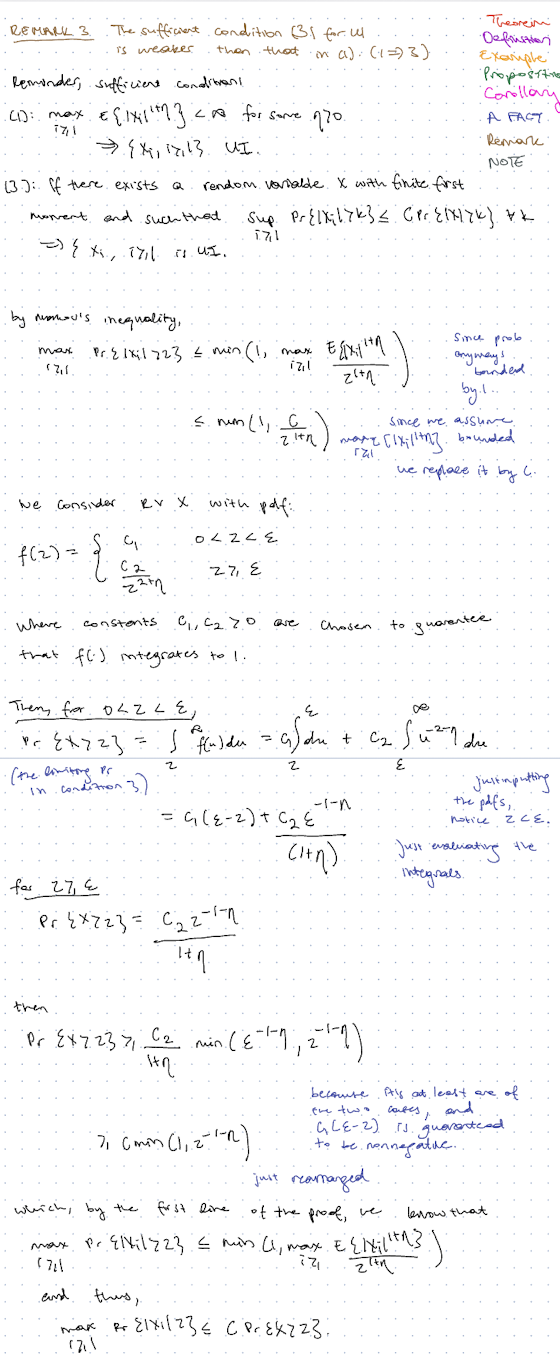 REMARK 3 The sufficient condition (3) for UI
is weaker than that in (1). (1 ⇒ 3)
Theorem
Definition
Example
Proposition
Corollary
A FACT
Remark
NOTE
Reminder, sufficient conditions
(1): max_{i≥1} E{|Xi|^{1+η}} < ∞ for some η>0
⇒ {Xi, i≥1} UI.
(3): If there exists a random variable X with finite first
moment and such that sup_{i≥1} Pr{|Xi|>k} ≤ C Pr{|X|>k} ∀ k
⇒ { Xi, i≥1 is UI.
by Markov's inequality,
max_{i≥1} Pr{|Xi|>z} ≤ min(1, max_{i≥1} E{|Xi|^{1+η} / z^{1+η})
since prob
anyways
bounded
by 1.
≤ min(1, C / z^{1+η})
since we assume
max_{i≥1} E[|Xi|^{1+η}] bounded
we replace it by C.
We consider RV X with pdf:
f(z) = { C₁ 0<z<ε
C₂ / z^{2+η} z≥ε
where constants C₁, C₂ > 0 are chosen to guarantee
that f(·) integrates to 1.
Then, for 0<z<ε,
Pr {X>z} = ∫_z^∞ f(u)du = C₁∫_z^ε du + C₂ ∫_ε^∞ u^{-2-η} du
(the limiting Pr
in condition 3)
just inputting
the pdfs,
notice z<ε.
= C₁(ε-z) + C₂ε^{-1-η} / (1+η)
just evaluating the
integrals.
for z≥ε
Pr {X>z} = C₂ z^{-1-η} / 1+η
then
Pr {X>z} ≥ C₂ / 1+η min(ε^{-1-η}, z^{-1-η})
because it's at least one of
the two cases, and
C₁(ε-z) is guaranteed
to be nonnegative.
≥ C min(1, z^{-1-η})
just rearranged
which, by the first line of the proof, we know that
max_{i≥1} Pr{|Xi|>z} ≤ min(1, max_{i≥1} E{|Xi|^{1+η}} / z^{1+η})
and thus,
max_{i≥1} Pr{|Xi|>z} ≤ C Pr{X>z}.